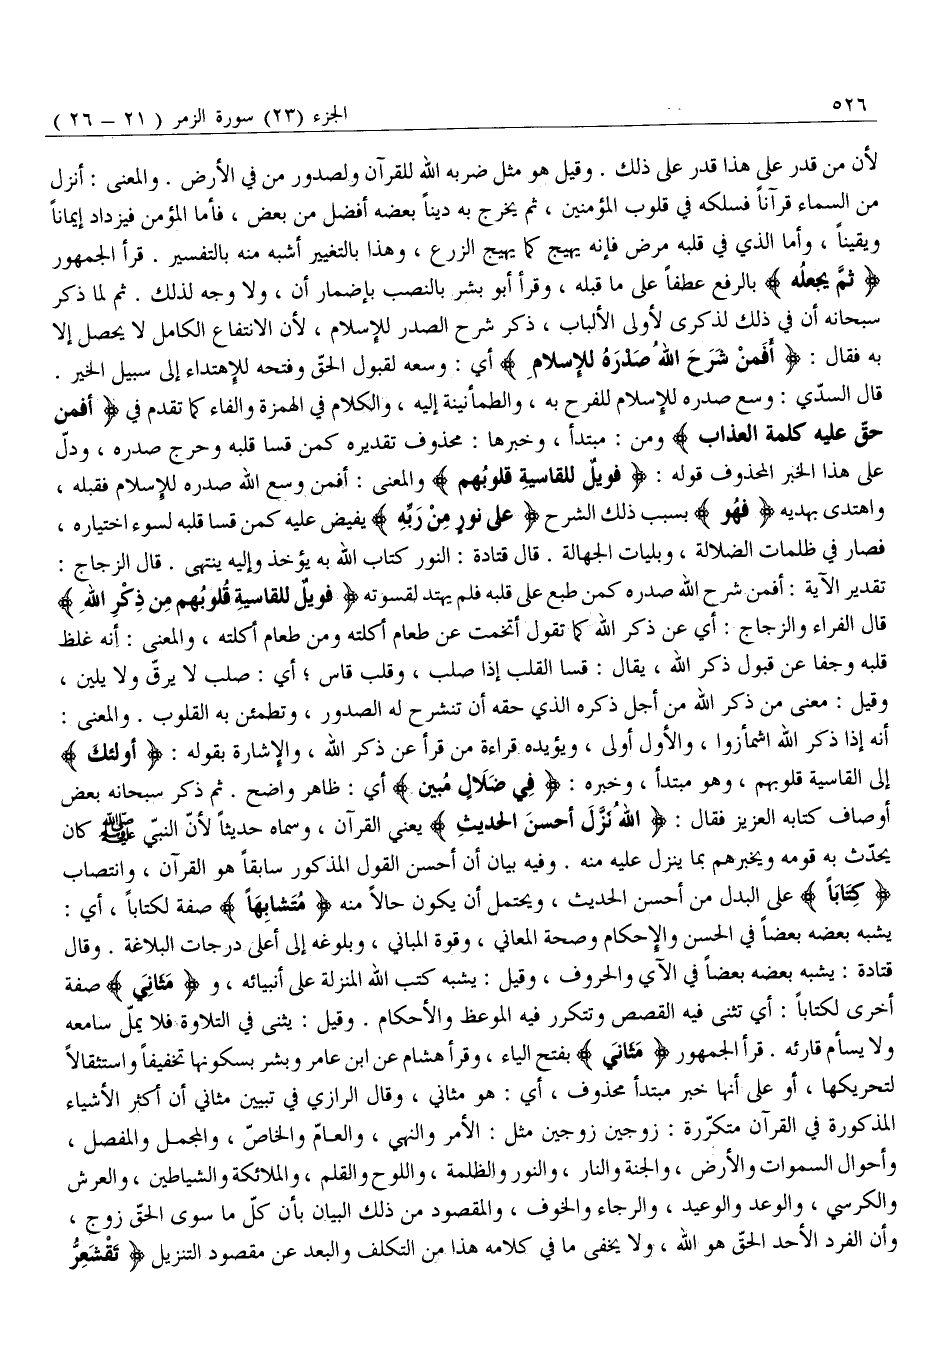 ٥٢٦
الجزء (٢٣) سورة الزمر ( ٢١ – ٢٦ )
لأن من قدر على هذا قدر على ذلك . وقيل هو مثل ضربه الله للقرآن ولصدور من في الأرض . والمعنى : أنزل
من السماء قرآناً فسلكه في قلوب المؤمنين ، ثم يخرج به ديناً بعضه أفضل من بعض ، فأما المؤمن فيزداد إيماناً
ويقيناً ، وأما الذي في قلبه مرض فإنه يهيج كما يهيج الزرع ، وهذا بالتغيير أشبه منه بالتفسير . قرأ الجمهور
﴿ ثمَّ يجعلُه ﴾ بالرفع عطفاً على ما قبله ، وقرأ أبو بشر بالنصب بإضمار أن ، ولا وجه لذلك . ثم لما ذكر
سبحانه أن في ذلك لذكرى لأولى الألباب ، ذكر شرح الصدر للإسلام ، لأن الانتفاع الكامل لا يحصل إلا
به فقال : ﴿ أَفَمنْ شرَحَ اللهُ صَدْرَهُ للإسلامِ ﴾ أي : وسعه لقبول الحقّ وفتحه للإهتداء إلى سبيل الخير .
قال السدّي : وسع صدره للإسلام للفرح به ، والطمأنينة إليه ، والكلام في الهمزة والفاء كما تقدم في ﴿ أفمن
حقّ عليه كلمة العذاب ﴾ ومن : مبتدأ ، وخبرها : محذوف تقديره كمن قسا قلبه وحرج صدره ، ودلّ
على هذا الخبر المحذوف قوله : ﴿ فويلٌ للقاسيةِ قلوبُهم ﴾ والمعنى : أفمن وسع الله صدره للإسلام فقبله ،
واهتدى بهديه ﴿ فهُو ﴾ بسبب ذلك الشرح ﴿ على نورٍ مِنْ رَبِّهِ ﴾ يفيض عليه كمن قسا قلبه لسوء اختياره ،
فصار في ظلمات الضلالة ، وبليات الجهالة . قال قتادة : النور كتاب الله به يؤخذ وإليه ينتهى . قال الزجاج :
تقدير الآية : أفمن شرح الله صدره كمن طبع على قلبه فلم يهتد لقسوته ﴿ فويلٌ للقاسيةِ قُلوبُهم مِن ذِكْرِ اللهِ ﴾
قال الفراء والزجاج : أي عن ذكر الله كما تقول أتخمت عن طعام أكلته ومن طعام أكلته ، والمعنى : أنه غلظ
قلبه وجفا عن قبول ذكر الله ، يقال : قسا القلب إذا صلب ، وقلب قاس ؛ أي : صلب لا يرقّ ولا يلين ،
وقيل : معنى من ذكر الله من أجل ذكره الذي حقه أن تنشرح له الصدور ، وتطمئن به القلوب . والمعنى :
أنه إذا ذكر الله اشمأزوا ، والأول أولى ، ويؤيده قراءة من قرأ عن ذكر الله ، والإشارة بقوله : ﴿ أولئك ﴾
إلى القاسية قلوبهم ، وهو مبتدأ ، وخبره : ﴿ فِي ضَلَالٍ مُبين ﴾ أي : ظاهر واضح . ثم ذكر سبحانه بعض
أوصاف كتابه العزيز فقال : ﴿ اللهُ نَزَّلَ أحسنَ الحديثِ ﴾ يعني القرآن ، وسماه حديثاً لأنّ النبيّ ﷺ كان
يحدّث به قومه ويخبرهم بما ينزل عليه منه . وفيه بيان أن أحسن القول المذكور سابقاً هو القرآن ، وانتصاب
﴿ كِتَاباً ﴾ على البدل من أحسن الحديث ، ويحتمل أن يكون حالاً منه ﴿ مُتَشابِهَاً ﴾ صفة لكتاباً ، أي :
يشبه بعضه بعضاً في الحسن والإحكام وصحة المعاني ، وقوة المباني ، وبلوغه إلى أعلى درجات البلاغة . وقال
قتادة : يشبه بعضه بعضاً في الآي والحروف ، وقيل : يشبه كتب الله المنزلة على أنبيائه ، و ﴿ مَثانِيَ ﴾ صفة
أخرى لكتاباً : أي تثنى فيه القصص وتتكرر فيه الموعظ والأحكام . وقيل : يثنى في التلاوة فلا يملّ سامعه
ولا يسأم قارئه . قرأ الجمهور ﴿ مَثانيَ ﴾ بفتح الياء ، وقرأ هشام عن ابن عامر وبشر بسكونها تخفيفاً واستثقالاً
لتحريكها ، أو على أنها خبر مبتدأ محذوف ، أي : هو مثاني ، وقال الرازي في تبيين مثاني أن أكثر الأشياء
المذكورة في القرآن متكرّرة : زوجين زوجين مثل : الأمر والنهي ، والعامّ والخاصّ ، والمجمل والمفصل ،
وأحوال السموات والأرض ، والجنة والنار ، والنور والظلمة ، واللوح والقلم ، والملائكة والشياطين ، والعرش
والكرسي ، والوعد والوعيد ، والرجاء والخوف ، والمقصود من ذلك البيان بأن كلّ ما سوى الحقّ زوج ،
وأن الفرد الأحد الحقّ هو الله ، ولا يخفى ما في كلامه هذا من التكلف والبعد عن مقصود التنزيل ﴿ تَقْشَعِرُّ